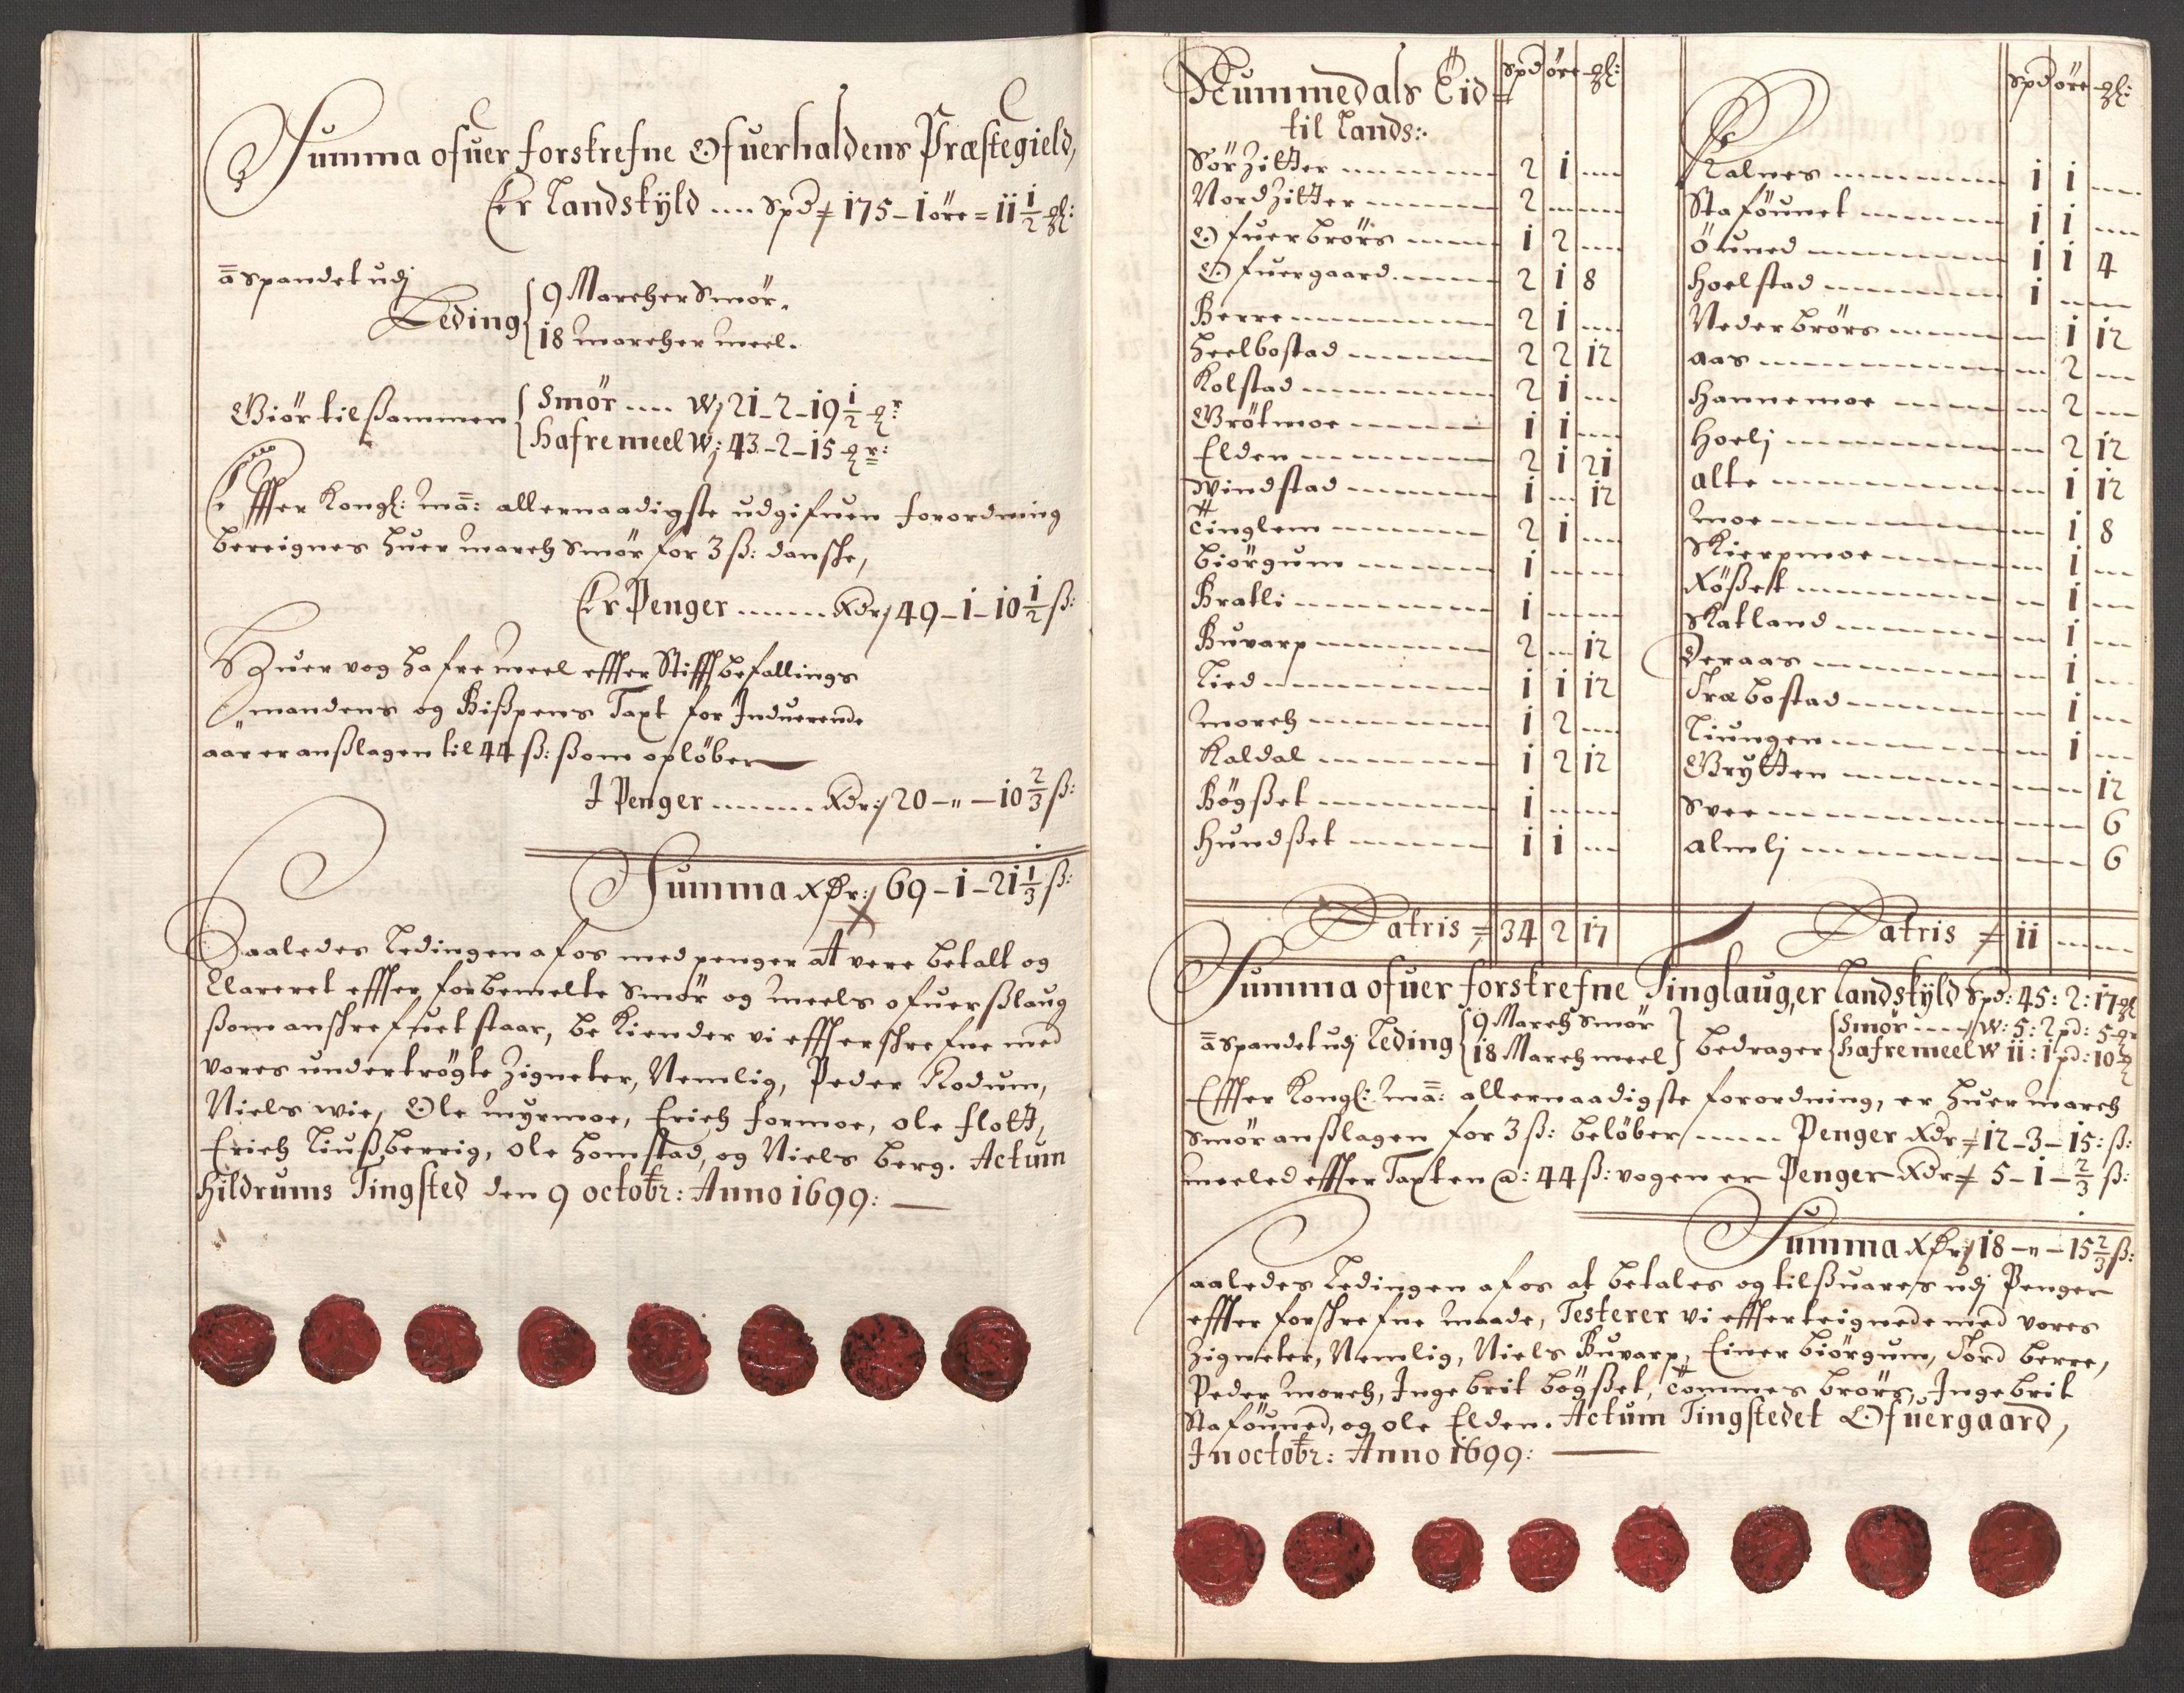 Summa ofuer forskrefne Ofuerhaldens Præstegield,
Er Landskÿld .... Spd 175 - 1 öre = 11 1/2 ql:
ā Spandet udj
Leding
9 Marcher Smör.
18 marcher meel.
Giör tilsammen
Smör .... W 21 - 2 - 19 1/2 qr:
Hafremeel W: 43 - 2 - 15 qr:
Effter Kongl: mā: allernaadigste udgifuen forordning
bereignes huer march Smör for 3 ß: danske,
Er Penger ...... Rdr 49 - 1 - 10 1/2 ß:
Huer vog hafremeel effter Stifftbefallings
mandens og Bißpens Taxt for Induerende
aar er anßlagen til 44 ß: ßom opløber
I Penger ...... Rdr: 20 - " - 10 2/3 ß:
Summa Rdr: 69 - 1 - 21 1/3 ß:
Saaledes Ledingen af os med penger at vere betalt og
Clareret effter forbemelte Smör og meels ofuerßlaug
ßom anskrefuet staar, be Kiender vi effterskrefne med
vores undertrögte Zigneter, Nemlig, Peder Rodum,
Niels wie, Ole myrmoe, Erich formoe, ole flott,
Erich Liußberrig, Ole homstad, og Niels berg. Actum
Hildrums Tingsted den 9 octobr: Anno 1699:
Nummedals Eid
til Lands:
Spd öre ql:
Sör Zitter 2 1
Nord Zitter 2
Ofuerbrörs 1 2
Ofuergaard 2 1 8
Berre 2 1
Heelbostad 2 2 12
Kolstad 2 1
Grötmoe 1 1
Elden 2 1 21
Windstad 1 12
Tinglem 2 1
biörgum 1
Bratli 1
Buvarp 2 12
Lied 1 1 12
morch 1 2
Kaldal 1 2 12
Bögßet 1
Hundßet 1 1
Latris 34 2 17
Spd öre ql:
Kalnes 1 1
Staföunet 1 1
Öuned 1 1 4
Hoelstad 1
Nederbrörs 1 12
aas 2
Hannemoe 2
Hoelj 2 12
alte 1 12
moe 1 8
Skierpmoe 1
Rößet 1
Skatland 1
Deraas 1
Træbostad 1
Liungen 1
Grytten 12
Svee 6
almlj 6
Latris 11
Summa ofuer forskrefne Tinglauger Landskyld Spd: 45: 2: 17 ql
ā Spandet udj Leding
9 March Smör
18 March meel
bedrager
Smör .... W: 5: 2 pd: 5 qr
Hafremeel W 11: 1 pd: 10 q
Effter Kongl: mā: allernaadigste forordning, er huer march
Smör anßlagen for 3 ß: belöber ...... Penger Rdr 12 - 3 - 15: ß:
meeled effter Taxten @: 44 ß: vogen er Penger Rdr 5 - 1 - 2/3 ß:
Summa Rdr 18 - " - 15 2/3 ß:
Saaledes Ledingen af os at betales og tilßuares udj Penger
effter forskrefne maade, Testerer vi effterteignede med vores
Zigneter, Nemlig, Niels Buvarp, Einer biörgum, Tord berre,
Peder morch, Ingebrit bögßet, Tommes brörs, Ingebrit
Staföuned, og ole Elden. Actum Tingstedet Ofuergaard,
In octobr: Anno 1699: